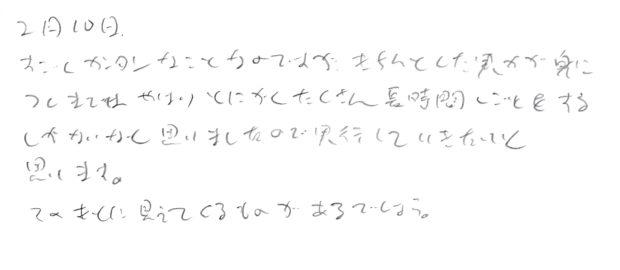 2月10日
すこしか分しなことなのですが、きちんとした実力が身に
つくまでは やはり とにかくたくさん長時間しごとをする
しかないかと思いましたので実行していきたいと
思います。
そのあとに見えてくるものがあるでしょう。